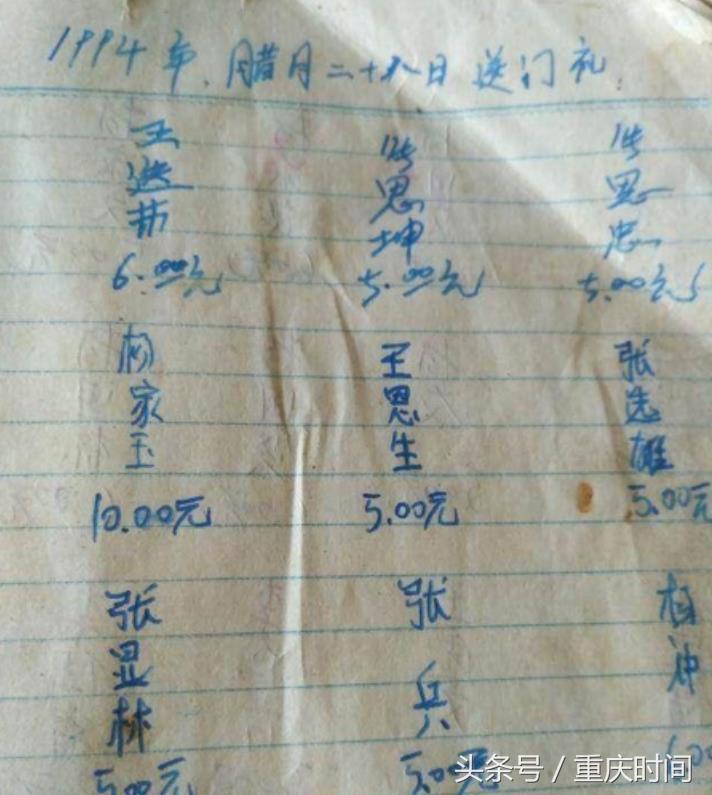 1994年.腊月二十八日送门礼
王选芬
6.00元
张思坤
5.00元
张思忠
5.00元
杨家玉
10.00元
王恩生
5.00元
张选雄
5.00元
张显林
5.00元
张兵
5.00元
杨冲
头条号/重庆时间